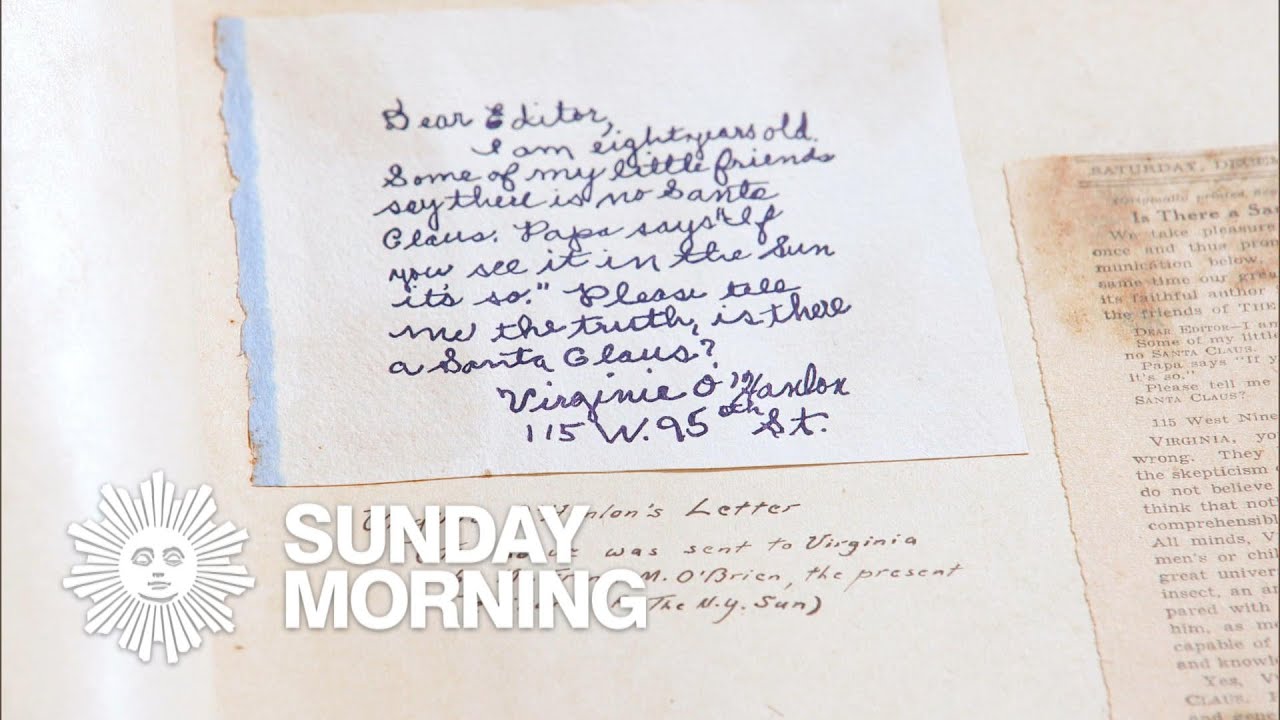 Dear Editor,
I am eight years old.
Some of my little friends
say there is no Santa
Claus. Papa says "If
you see it in the Sun
it's so." Please tell
me the truth, is there
a Santa Claus?
Virginia O'Hanlon
115 W. 95th St.
Letter
was sent to Virginia
M. O'Brien, the present
The N.Y. Sun)
SUNDAY
MORNING
SATURDAY,
Is There a
We take pleasure
once and thus
munication below,
same time our
its faithful author
the friends of THE
DEAR EDITOR—I
Some of my little
no SANTA CLAUS.
Papa says "If
it's so."
Please tell me
SANTA CLAUS?
115 West
VIRGINIA,
wrong. They
the skepticism
do not believe
think that
comprehensible
All minds,
men's or
great
insect, an
pared with
him, as
capable of
and
Yes,
CLAUS.
and